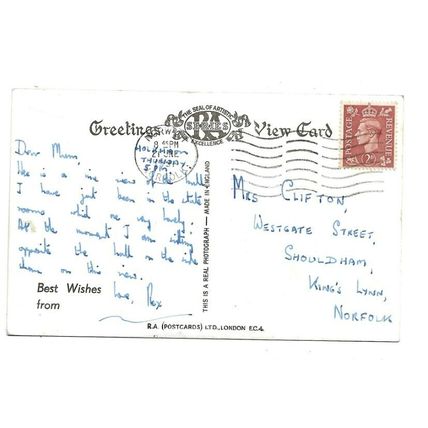 THE SEAL OF ARTISTIC
RA
SERIES
EXCELLENCE
Greetings
View Card
POSTAGE
REVENUE
HOLKHAM
THURSDAY
5 PM
Dear Mum,
Here is a nice view of the hall
I have just been in the state
rooms, which are very lovely.
At the moment I am sitting
opposite the hall on the side
shown on this view.
Love, Rex
Best Wishes
from
THIS IS A REAL PHOTOGRAPH — MADE IN ENGLAND
MRS CLIFTON,
WESTGATE STREET,
SHOULDHAM,
KING'S LYNN,
NORFOLK
R.A. (POSTCARDS) LTD., LONDON E.C.4.